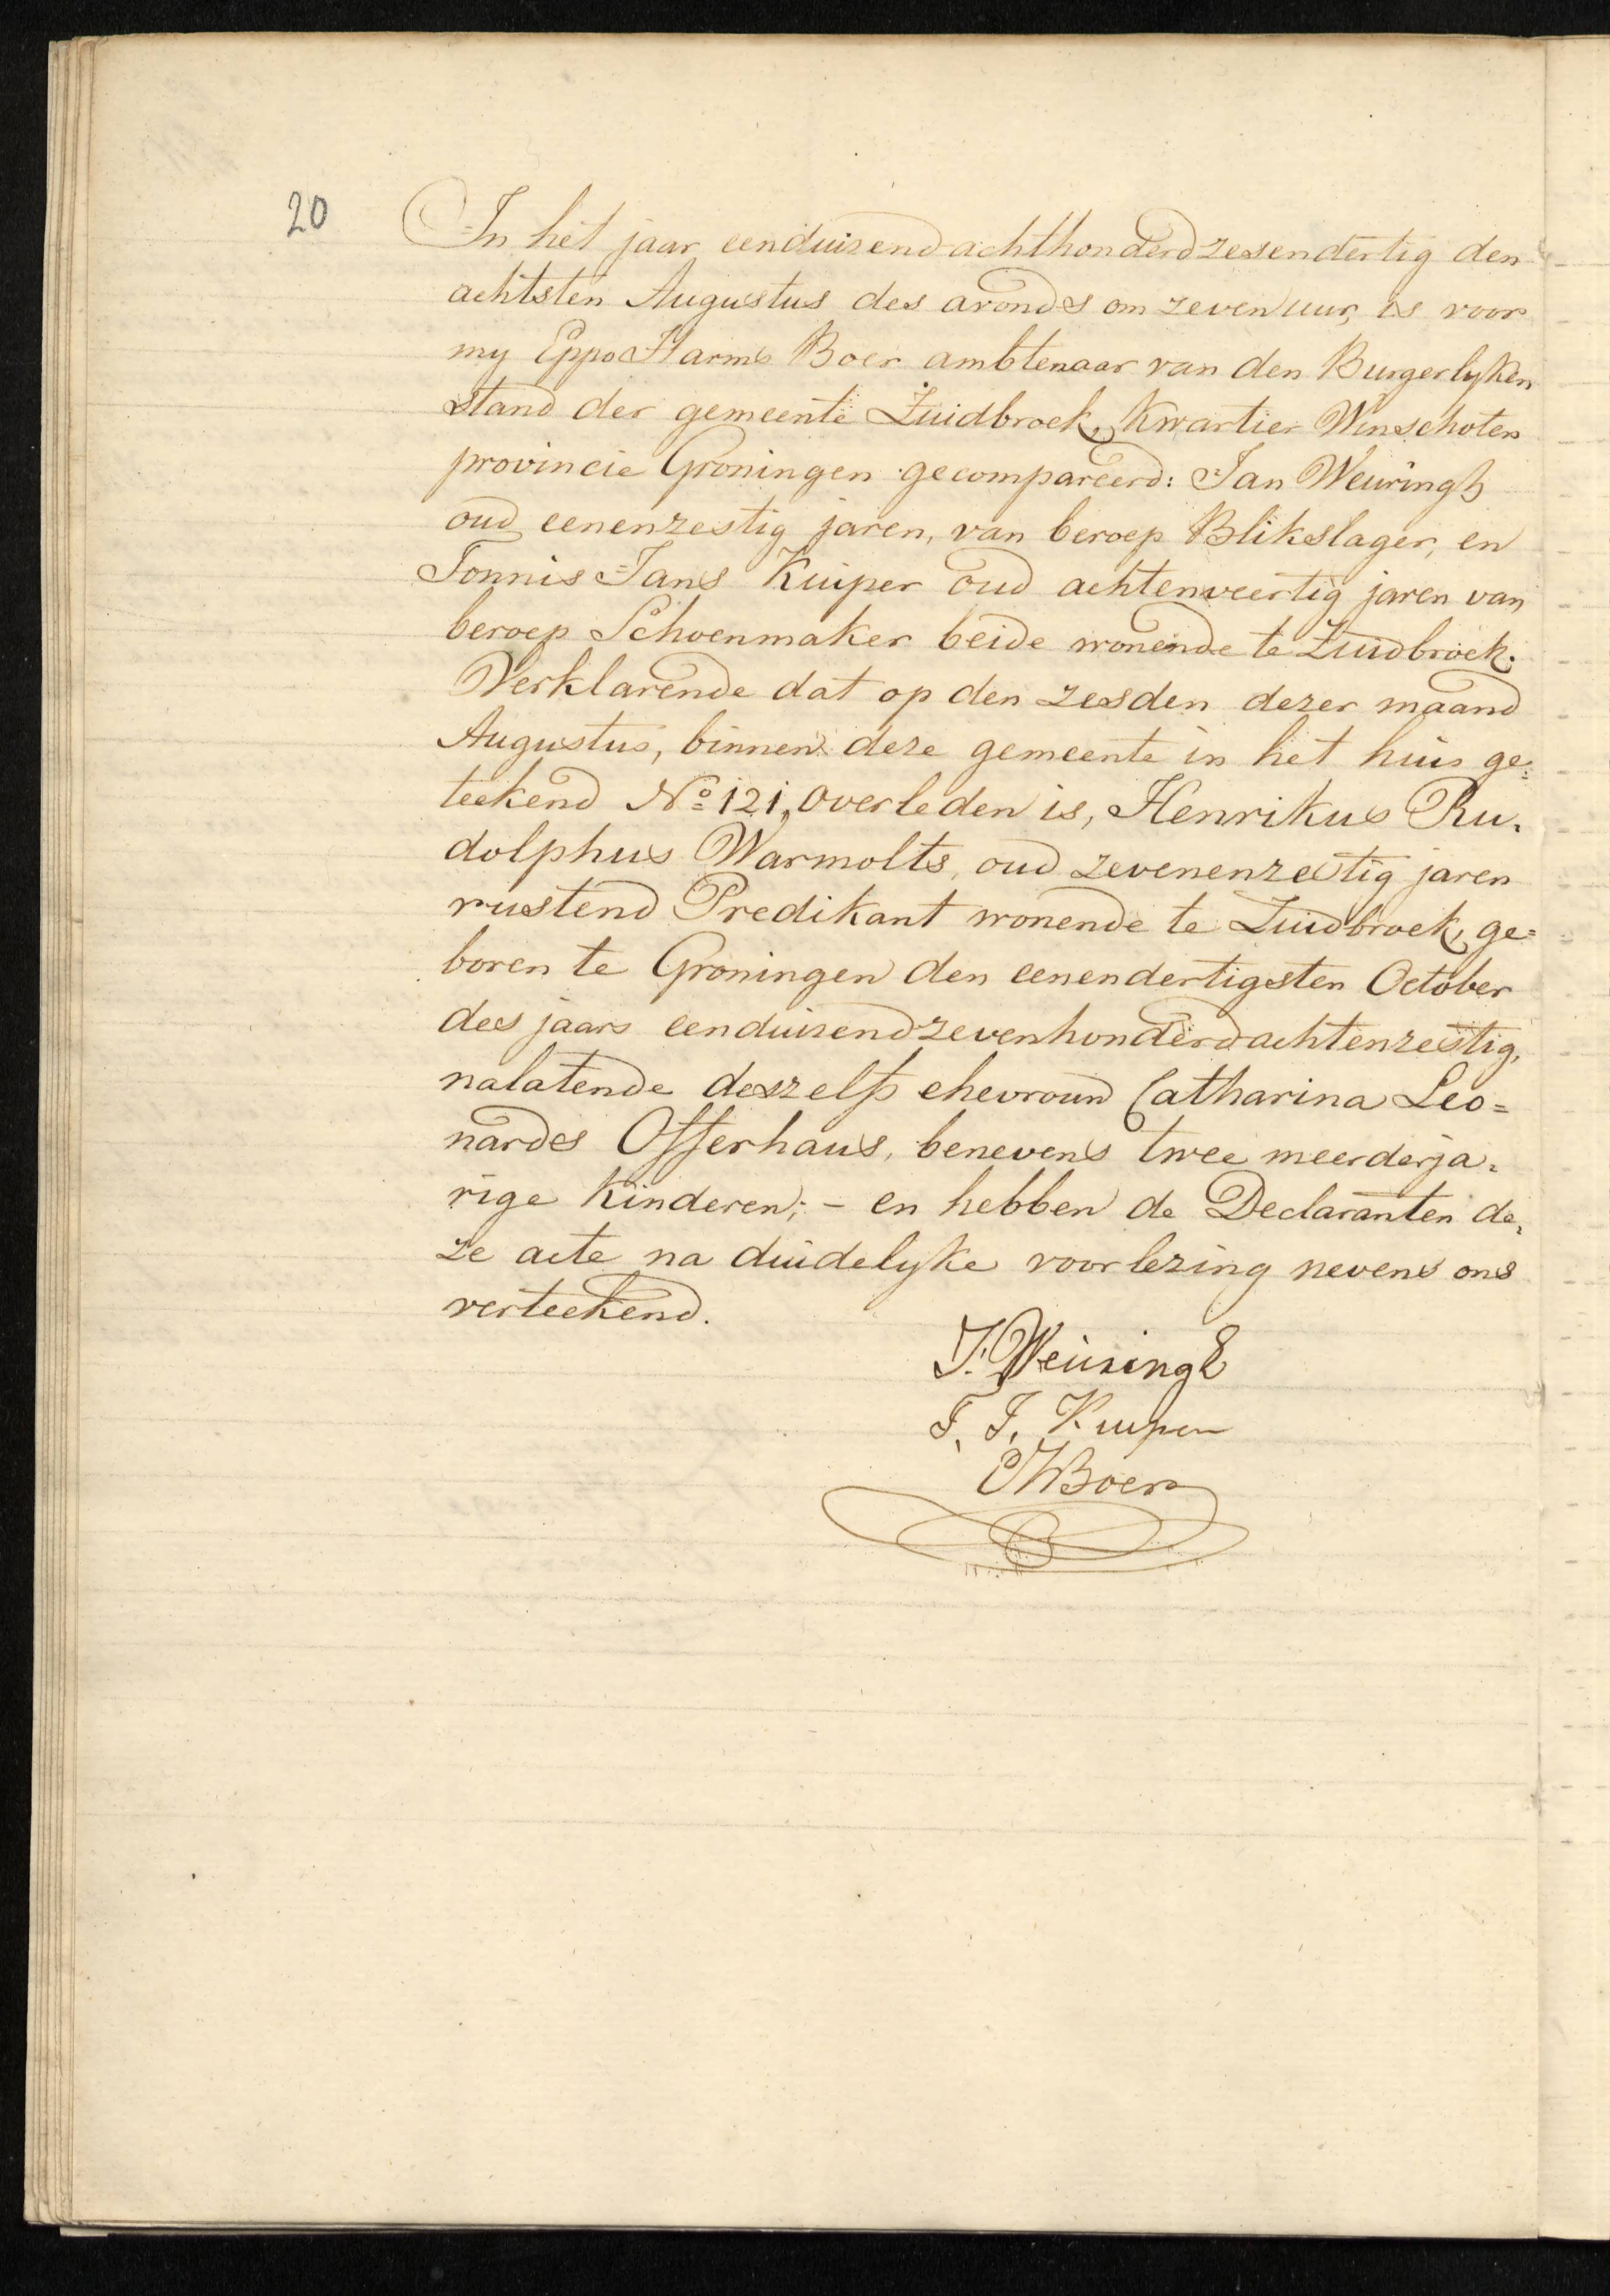 20
In het jaar eenduizend achthonderd zesendertig den
achtsten Augustus des avonds om zeven uur, is voor
my Eppo Harms Boer ambtenaar van den Burgerlyken
stand der gemeente Zuidbroek, Kwartier Winschoten
provincie Groningen gecompareerd: Jan Weuringh
oud eenenzestig jaren, van beroep Blikslager, en
Tonnis Jans Kuiper oud achtenveertig jaren van
beroep Schoenmaker beide wonende te Zuidbroek.
Verklarende dat op den zesden dezer maand
Augustus, binnen deze gemeente in het huis ge=
teekend No 121, overleden is, Henrikus Ru=
dolphus Warmolts, oud zevenenzestig jaren
rustend Predikant wonende te Zuidbroek, ge=
boren te Groningen den eenendertigsten October
des jaars eenduizendzevenhonderdachtenzestig,
nalatende deszelfs ehevrouw Catharina Leo=
nardes Offerhaus, benevens twee meerderja=
rige Kinderen; - en hebben de Declaranten de=
ze acte na duidelyke voorlezing nevens ons
verteekend.
J. Weuringh
T. J. Kuiper
EHBoer